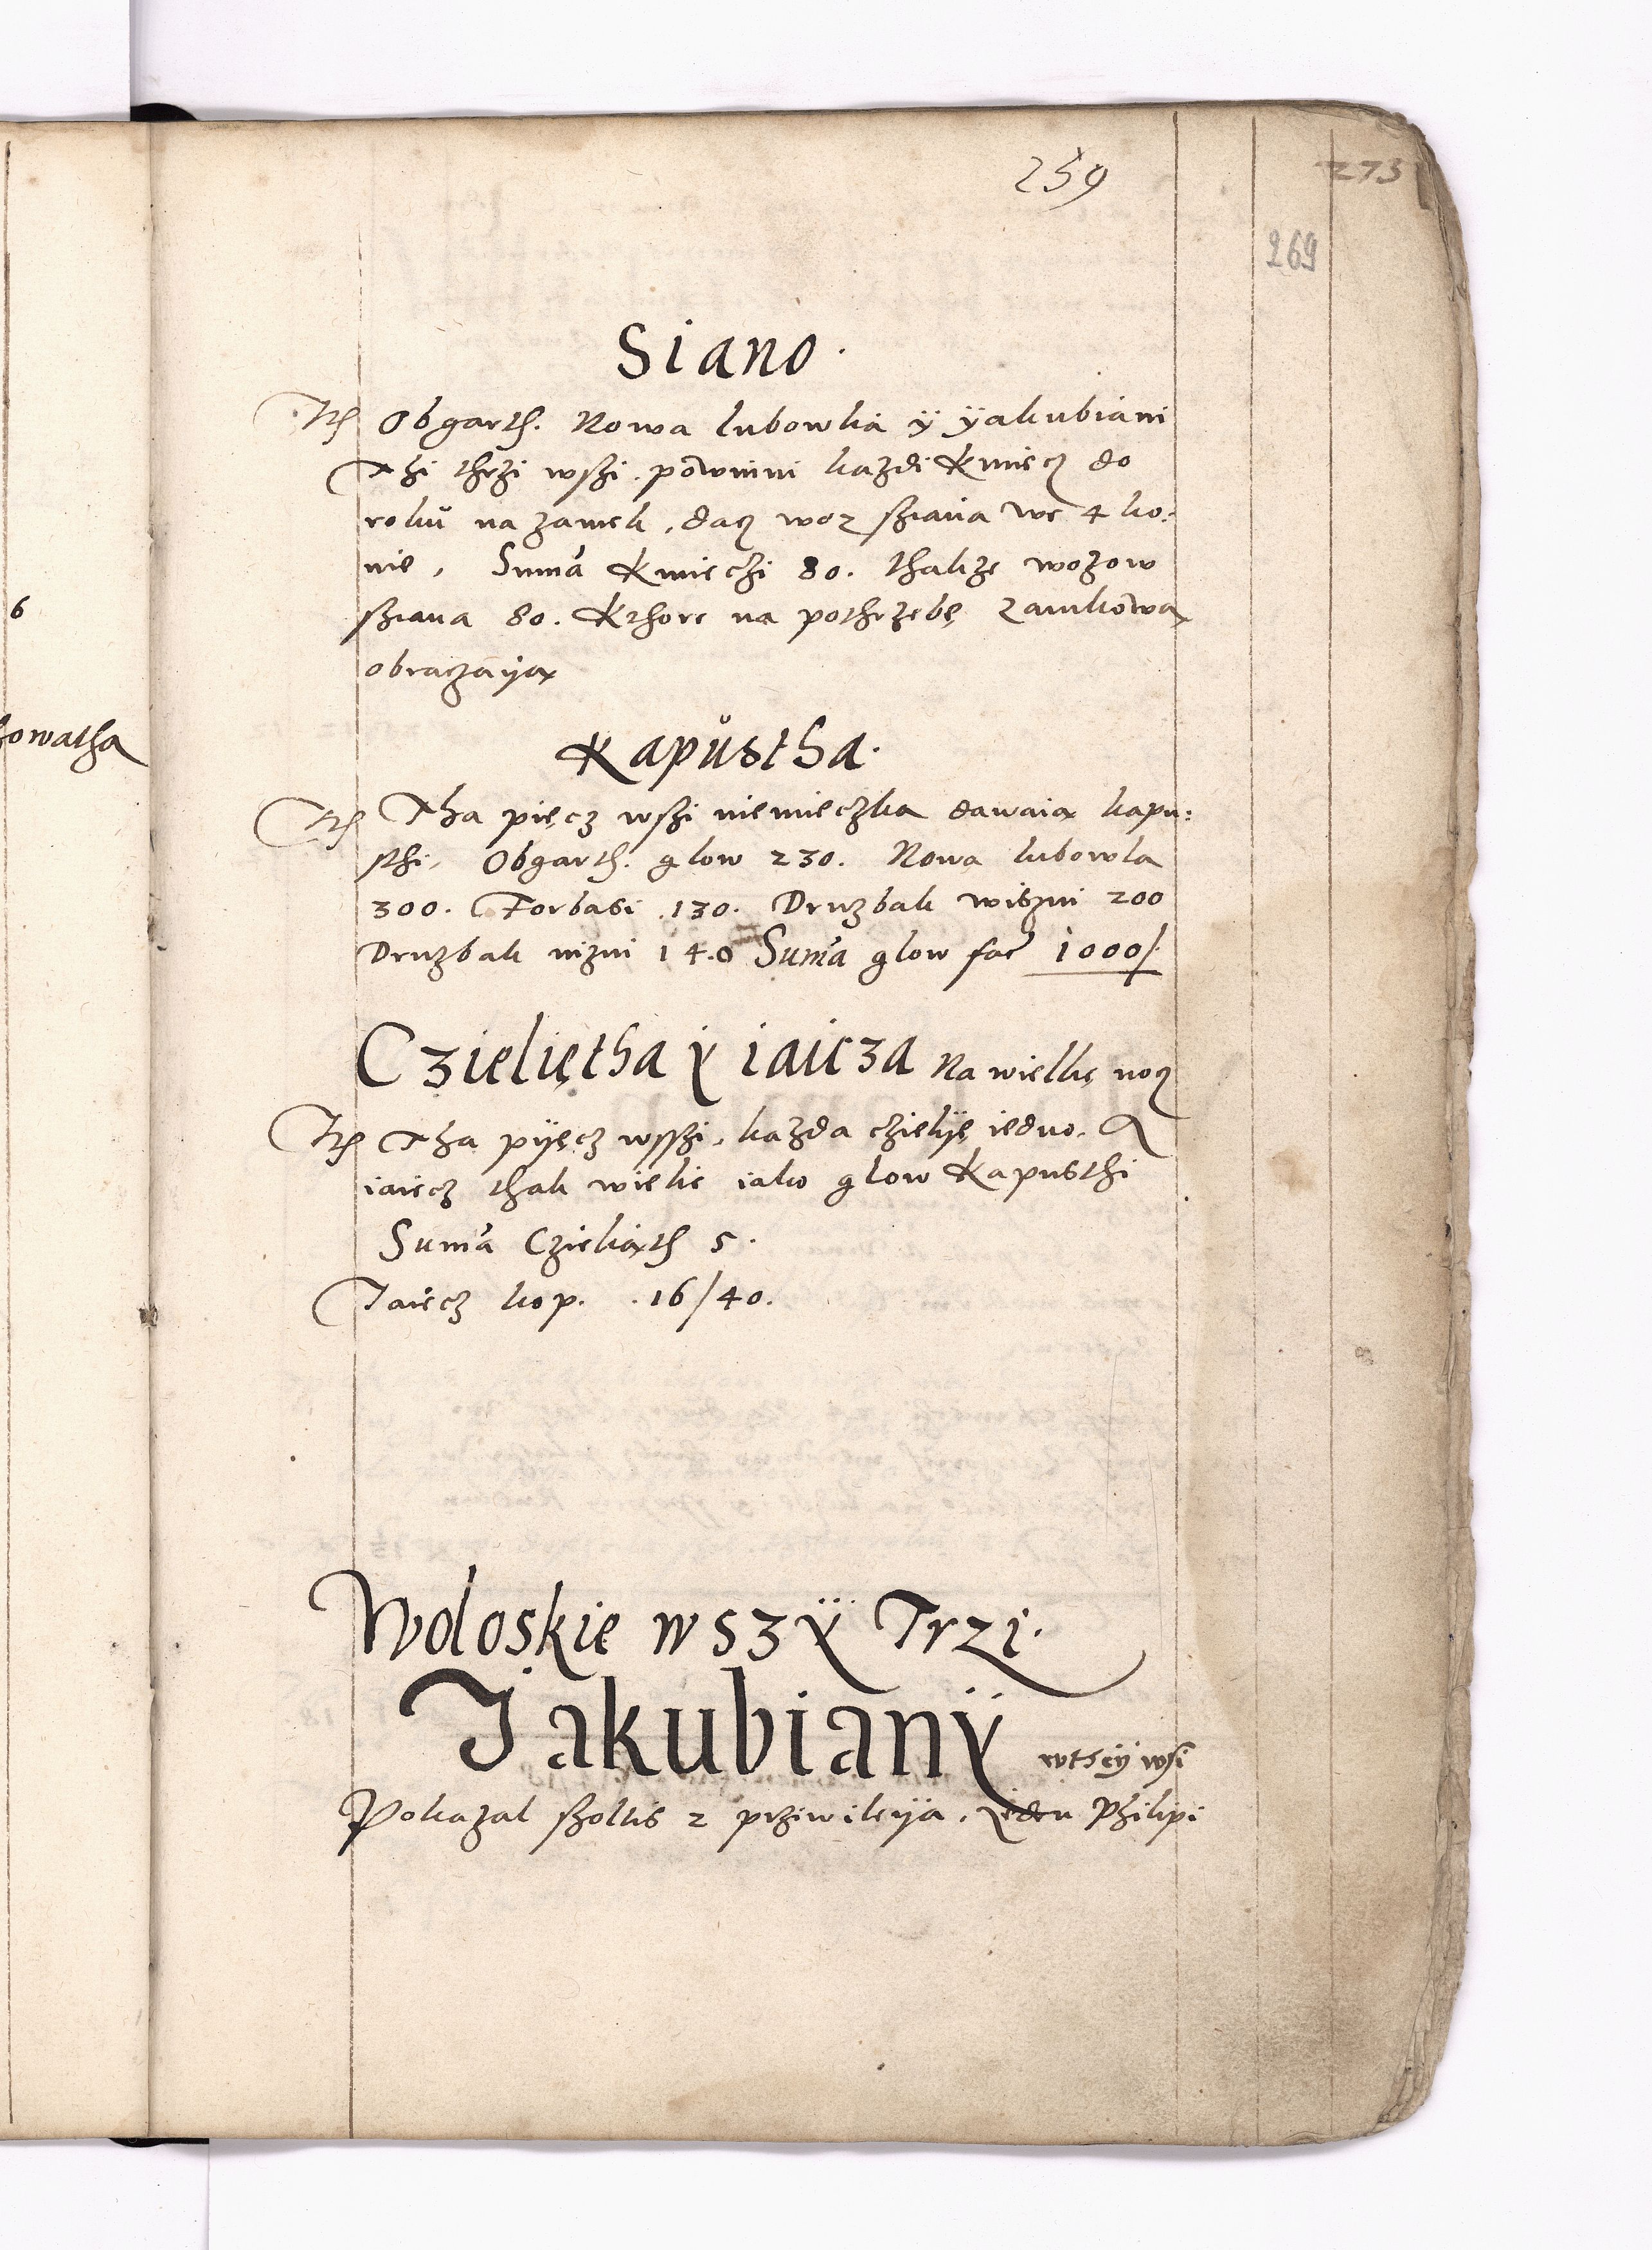 259
273
269
6
Siano.
Itҽ Obgarth. Nowa lubowlia ÿ ÿakubiani
Thi thrzi wszi. powinni kazdi Kmiecz do
roku na zamek, dacz woz sziana we 4 ko:
nie, Sum̃a Kmieczi 80. thakze wozow
sziana 80. Kthore na pothrzebę zamkową
obraczaÿą
Kapustha.
Tha pięcz wszi niemieczka dawaią kapu:
sthi, Obgarth. glow 230. Nowa lubowla
300. Forbasi .130. Druzbak wiszni 200
Druzbak nizni 140 Sum̃a glow fac̃ 1000/.
Czieliętha ÿ iaicza Na wielkę nocz
Tha pÿęcz wsszi, kazda czielÿę iedno. A
iaiecz thak wiele iako glow Kapusthi
Sum̃a Czieliąth 5.
Iaiecz kop. .16/40.
Woloskie wszÿ Trzi.
Iakubianÿ wtheÿ wsi
Pokazal szoltis 2 prziwileÿa, ieden Philipi